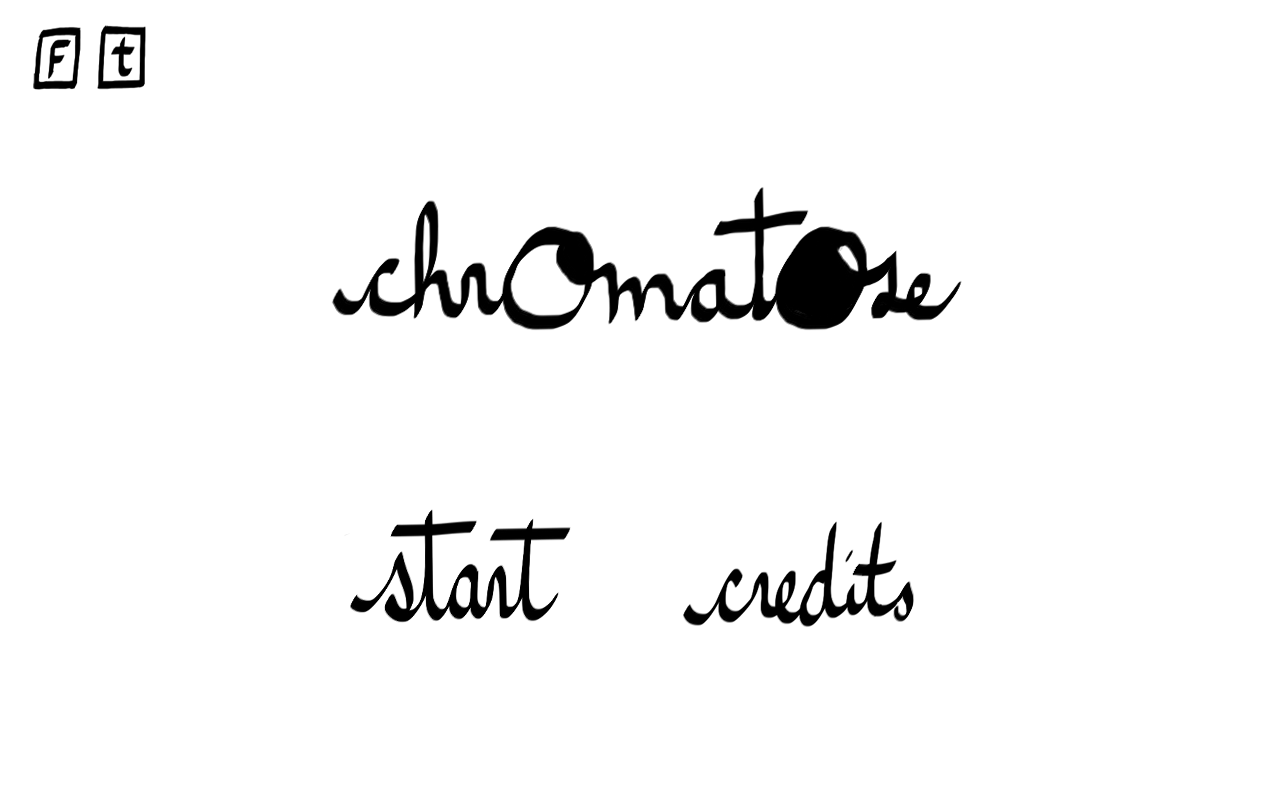 F t
chrOmatOse
start credits